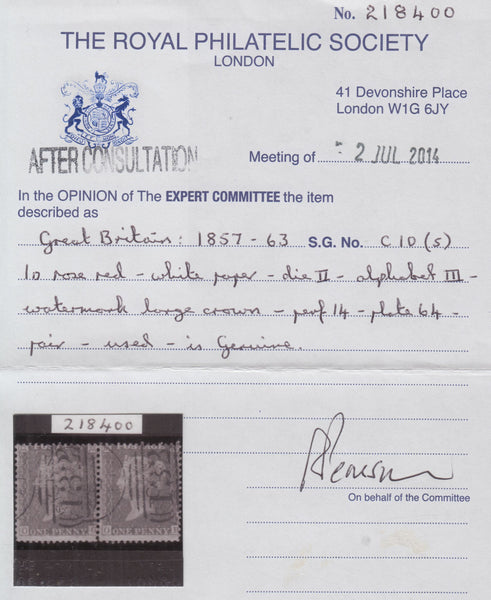 No. 218400
THE ROYAL PHILATELIC SOCIETY
LONDON
41 Devonshire Place
London W1G 6JY
AFTER CONSULTATION
Meeting of 2 JUL 2014
In the OPINION of The EXPERT COMMITTEE the item
described as
Great Britain: 1857-63 S.G. No. C10(s)
1D rose red - white paper - die II - alphabet III -
watermark large crown - perf 14 - plate 64 -
pair - used - is Genuine.
218400
On behalf of the Committee
ONE PENNY ONE PENNY